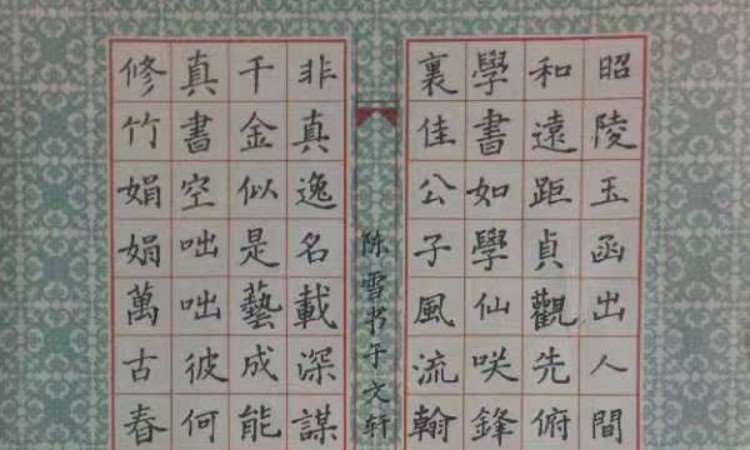 昭陵玉函出人間
和遠距貞觀先俯
學書如學仙咲鋒
裏佳公子風流翰
陈雪书于文轩
非真逸名載深謀
千金似是藝成能
真書空咄咄彼何
修竹娟娟萬古春